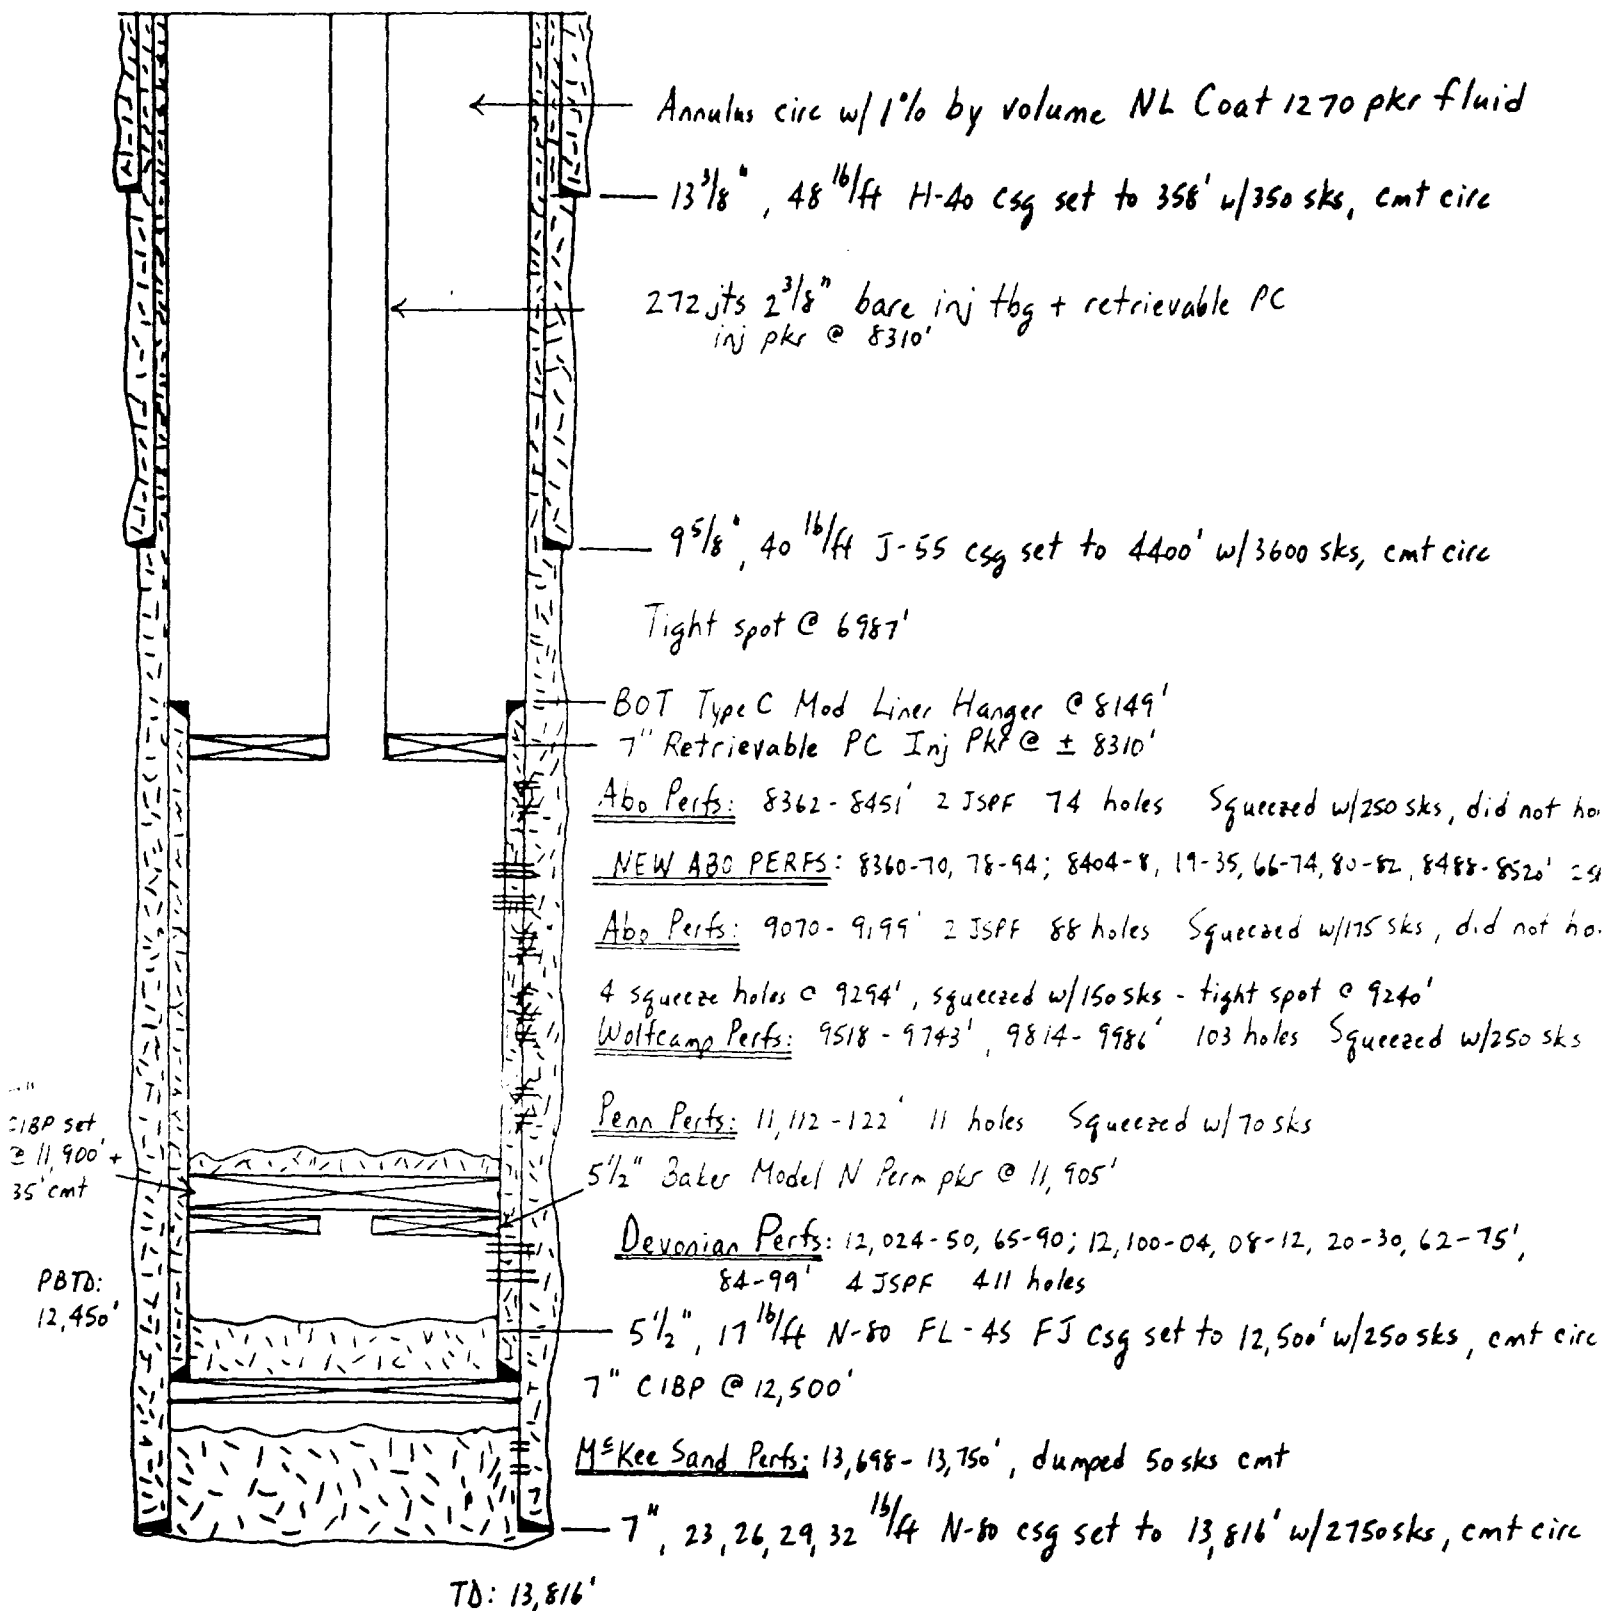 Annulus circ w/ 1% by volume NL Coat 1270 pkr fluid
13 3/8", 48 lb/ft H-40 csg set to 358' w/350 sks, cmt circ
272 jts 2 3/8" bare inj tbg + retrievable PC
inj pkr @ 8310'
9 5/8", 40 lb/ft J-55 csg set to 4400' w/3600 sks, cmt circ
Tight spot @ 6987'
BOT Type C Mod Liner Hanger @ 8149'
7" Retrievable PC Inj Pkr @ ± 8310'
Abo Perfs: 8362-8451' 2 JSPF 74 holes Squeezed w/250 sks, did not
NEW ABO PERFS: 8360-70, 78-94; 8404-8, 19-35, 66-74, 80-82, 8488-8520'
Abo Perfs: 9070-9199' 2 JSPF 88 holes Squeezed w/175 sks, did not
4 squeeze holes @ 9294', squeezed w/150 sks - tight spot @ 9240'
Wolfcamp Perfs: 9518-9743', 9814-9986' 103 holes Squeezed w/250 sks
Penn Perfs: 11,112-122' 11 holes Squeezed w/70 sks
CIBP set
@ 11,900' +
35' cmt
5 1/2" Baker Model N Perm pkr @ 11,905'
Devonian Perfs: 12,024-50, 65-90; 12,100-04, 08-12, 20-30, 62-75',
84-99' 4 JSPF 411 holes
PBTD:
12,450'
5 1/2", 17 lb/ft N-80 FL-4S FJ csg set to 12,500' w/250 sks, cmt circ
7" CIBP @ 12,500'
McKee Sand Perfs: 13,698-13,750', dumped 50 sks cmt
7", 23, 26, 29, 32 lb/ft N-80 csg set to 13,816' w/2750 sks, cmt circ
TD: 13,816'